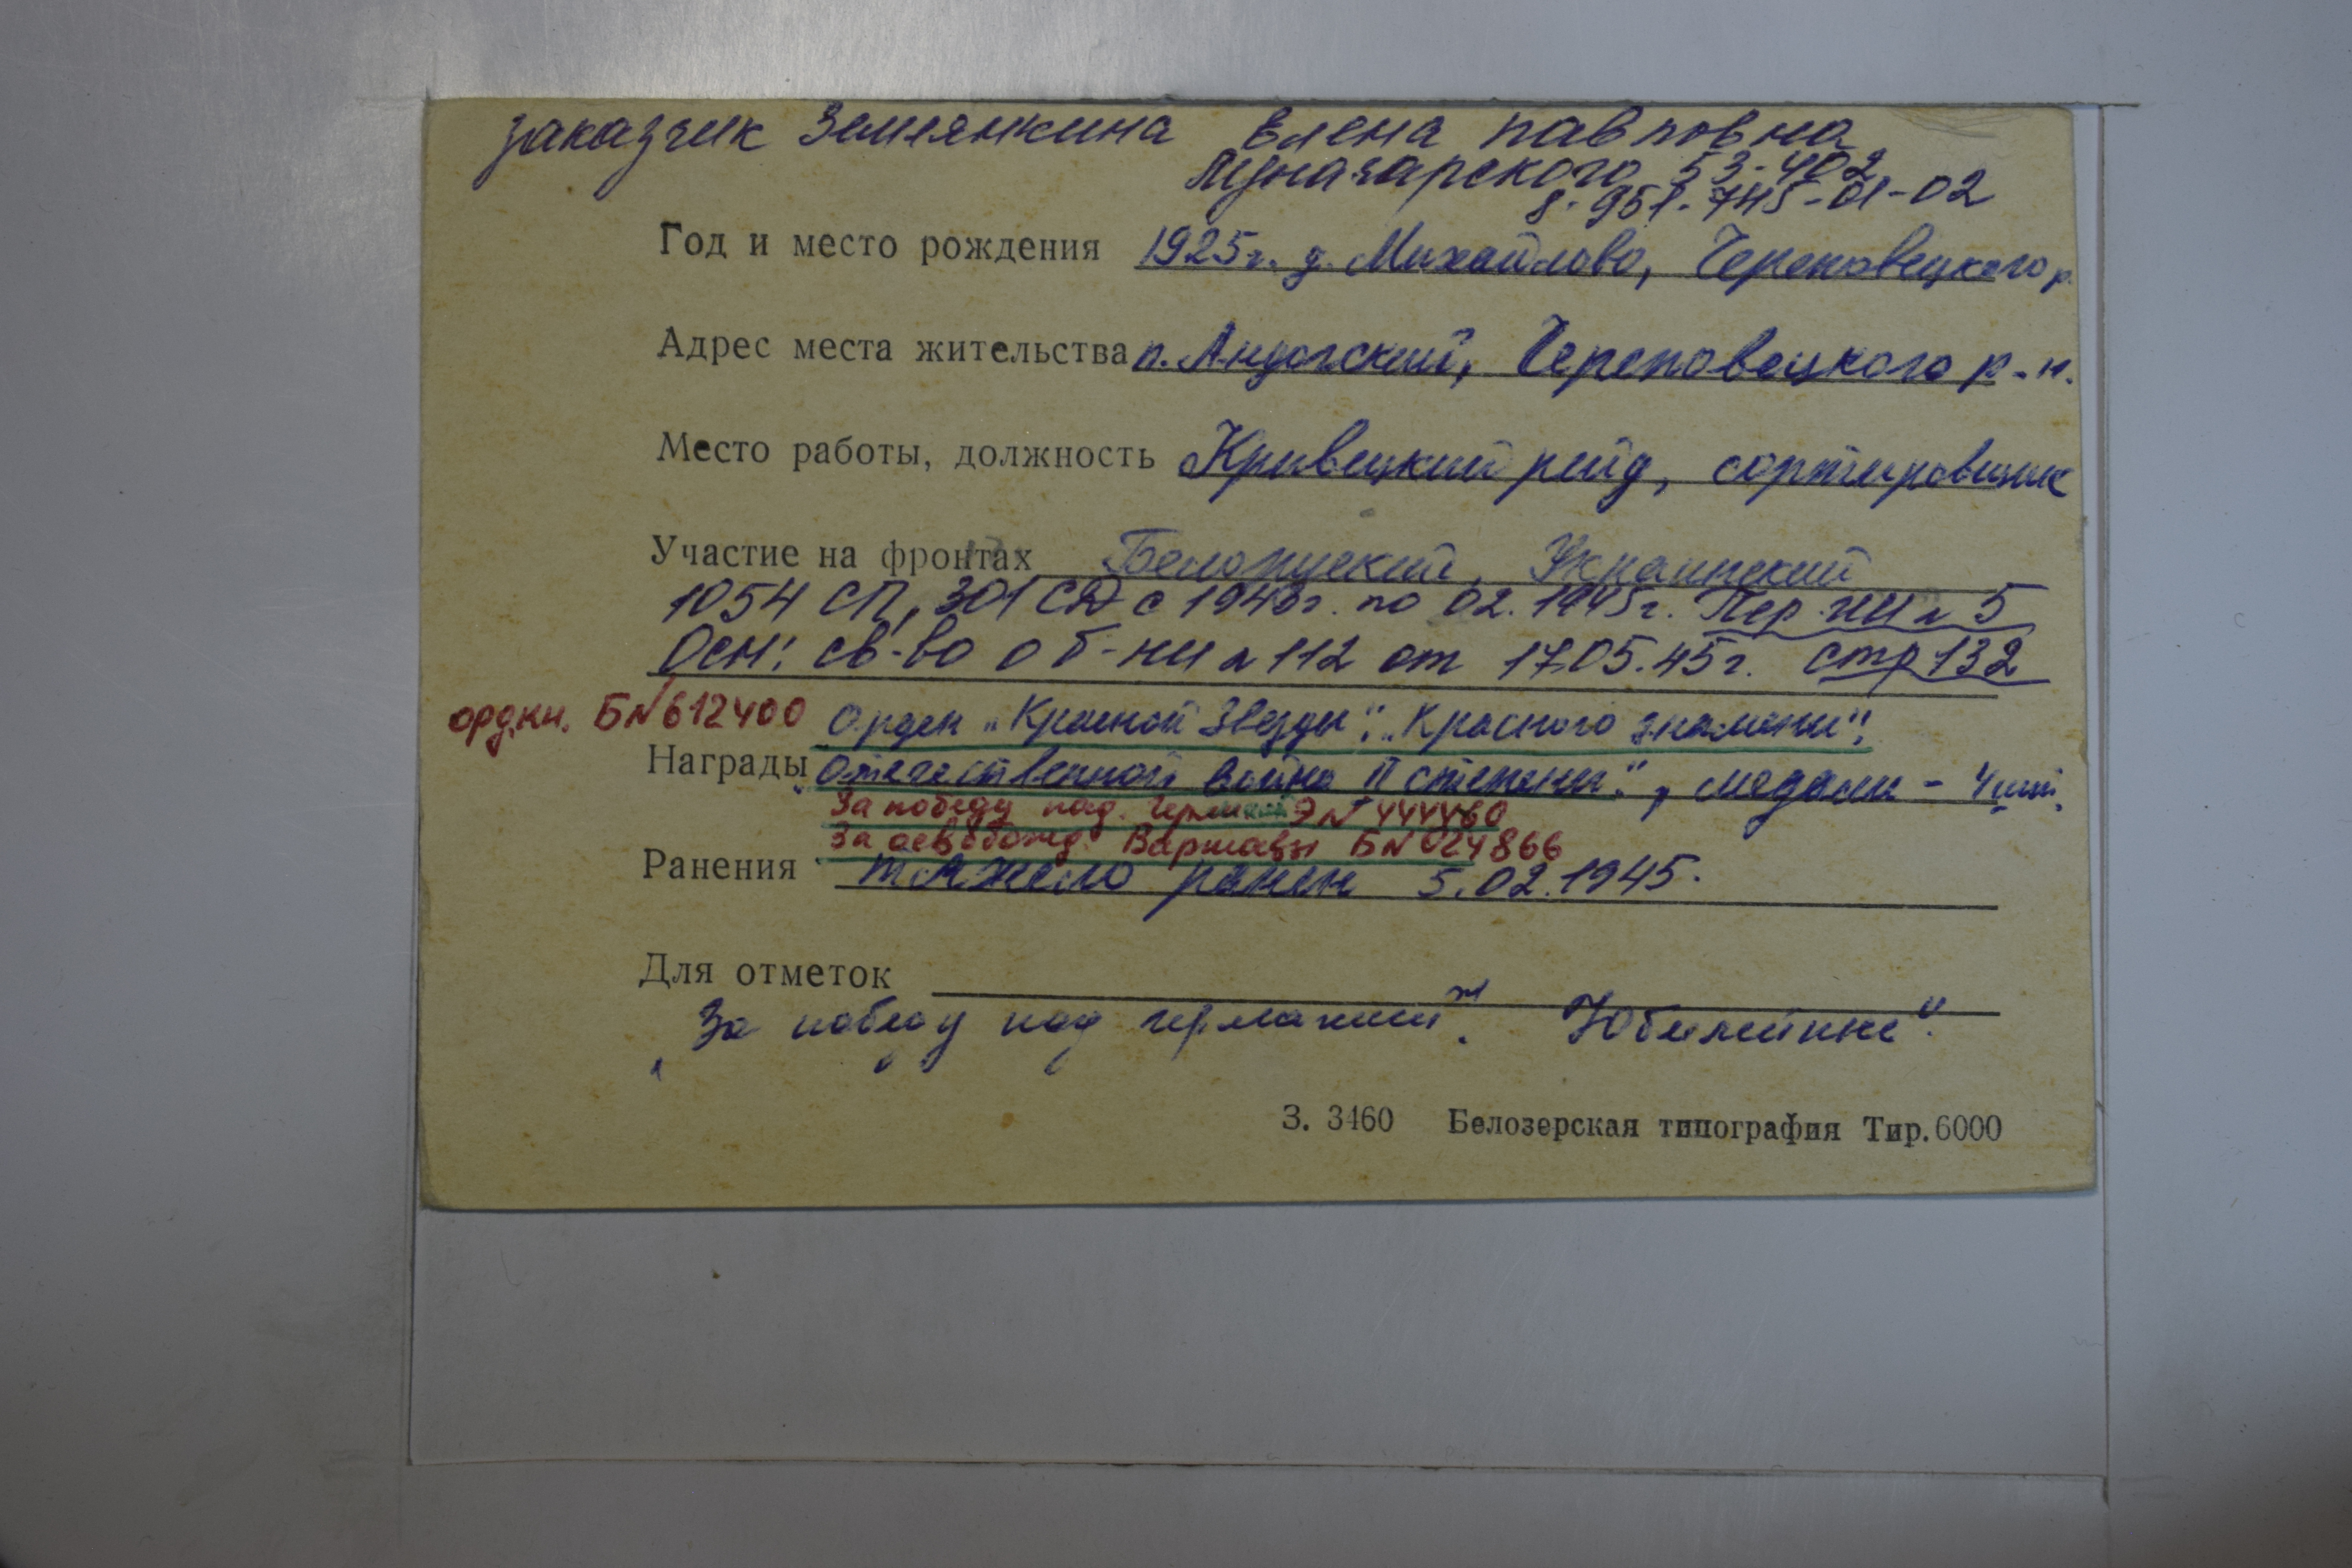 заказчик Землянкина Елена Павловна
Луначарского 53-402
8-951-745-01-02
Год и место рождения 1925г. д. Михайлово, Череповецкого р.
Адрес места жительства п. Андогский, Череповецкого р-н.
Место работы, должность Кривецкий рейд, сортировщик
Участие на фронтах Белоруский, Украинский
1054 СП, 301 СД с 1943г. по 02.1945г. Пер. №5
Осн: св-во о б-ни №112 от 17.05.45г. стр 132
орд.кн. Б№612400 Орден „Красной Звезды", „Красного знамени",
Награды „Отечественной война II степени", медали - 4 шт.
За победу над Германией Э№444460
За освобожд. Варшавы Б№024866
Ранения тяжело ранен 5.02.1945.
Для отметок
„За победу над германией". Юбилейные".
З. 3460 Белозерская типография Тир. 6000